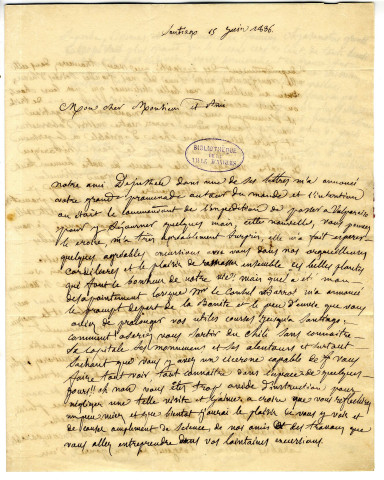 Santiago 15 juin 1836.
Mon cher Monsieur et ami
BIBLIOTHEQUE
DE LA
VILLE D'ANGERS
notre ami dans une de ses lettres m'a annoncé
votre grande promenade autour du monde et l'intention
où était le commandant de l'expédition de passer à Valparaiso
pour y séjourner quelques mois, cette nouvelle, vous pouvez
le croire, m'a très agréablement surpris, elle m'a fait espérer
quelques agréables excursions avec vous dans nos orgueilleuses
cordillères et le plaisir de ramasser ensemble ces belles plantes
que font le bonheur de notre vie mais quel a été mon
désapointement lorsque Mr le Consul Barrot m'a annoncé
le prompt départ de la Bonite et le peu d'envie que vous
aviez de prolonger vos utiles courses jusqu'à Santiago.
comment oserez vous sortir du Chili sans connaitre
sa capitale ses monumens et ses alentours et surtout
sachant que vous y avez un cicerone capable de vous
faire tout voir tout connaitre dans l'espace de quelques
jours!! oh non vous êtes trop avide d'instruction pour
négliger une telle visite et j'aime à croire que vous réfléchirez
un peu mieux et que bientôt j'aurai le plaisir de vous y voir et
de causer amplement de science, de nos amis et des travaux que
vous allez entreprendre dans vos lointaines excursions.